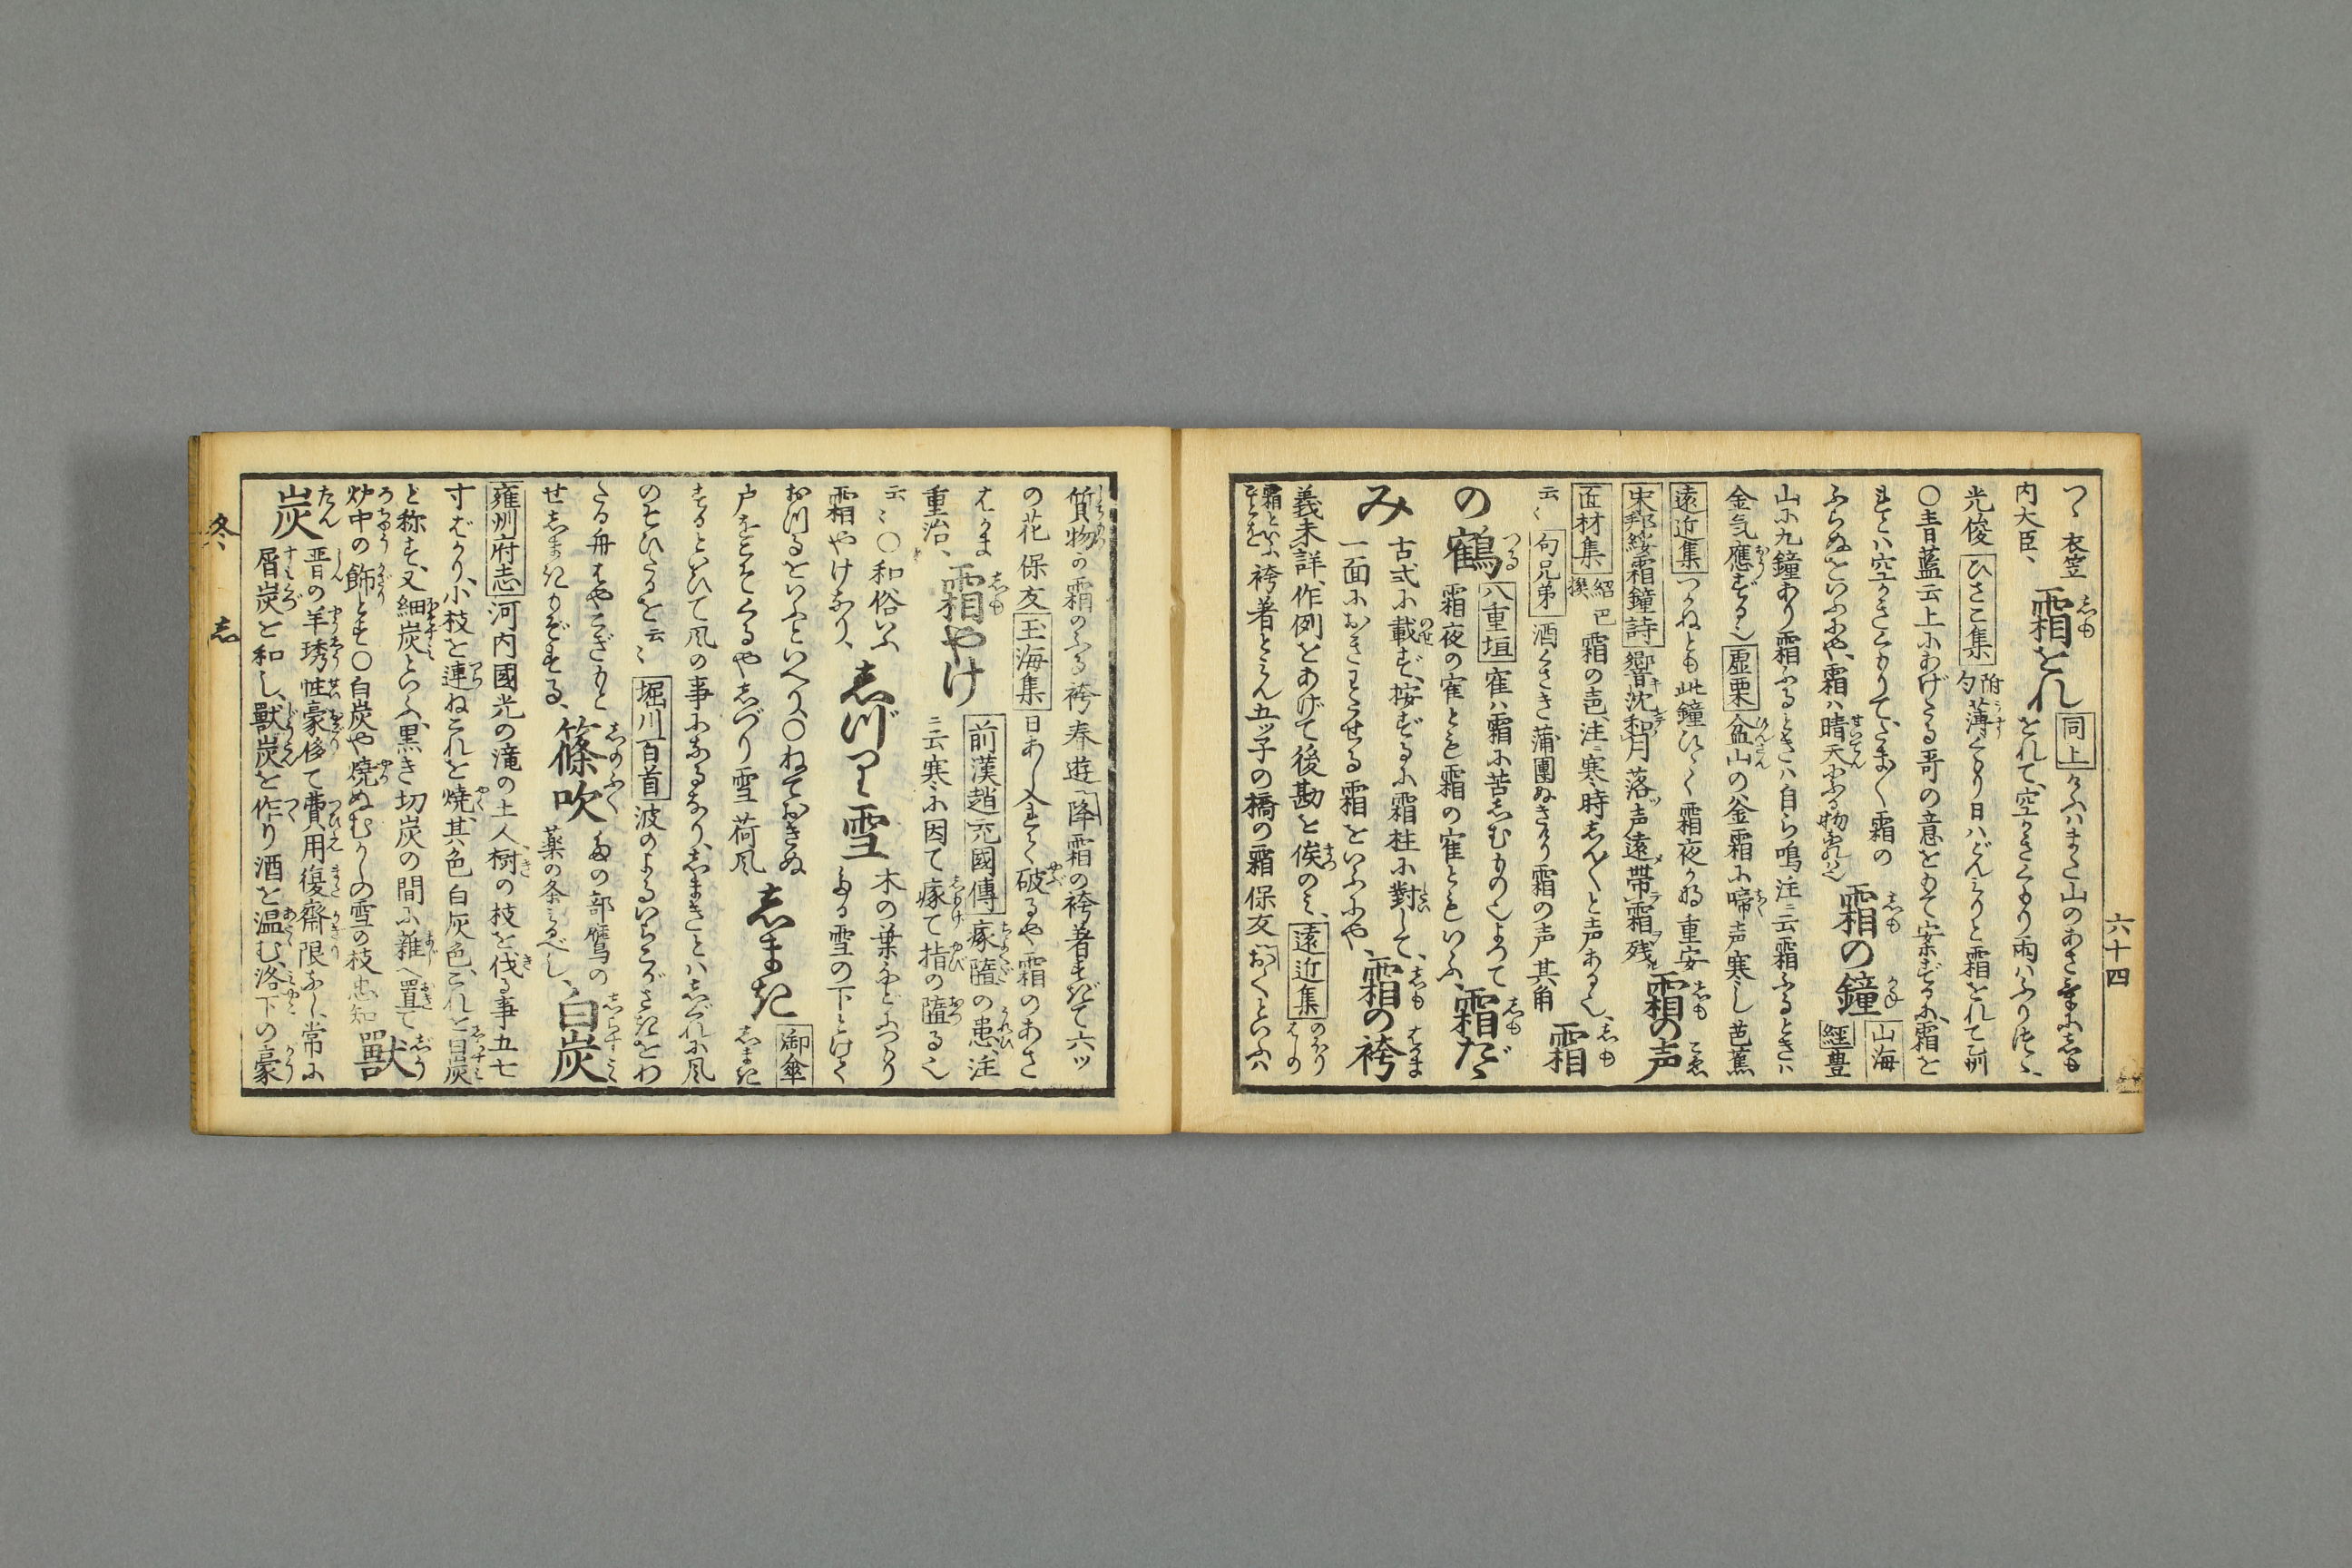 六十四
つゝ衣笠
内大臣、霜をれ同上けふはまた山のあさまに志も
をれて空かきくもり雨はふりつゝ、
光俊ひさこ集附句薄くもり日はどんみりと霜をれて乙州
〇青藍云上にあげたる哥の意をもて案ずるに、霜を
れとは空かきくもりて、たま〳〵霜の
ふらぬをいふにや、霜は晴天にふる物なれば也
霜の鐘山海経豊
山に九鐘あり霜ふるときは自ら鳴注云霜ふるときは
金気應ずる也虚栗盆山の釜霜に啼声寒し芭蕉
遠近集つかぬとも此鐘ひゞく霜夜かね重安
宋邦綏霜鐘詩響沈和月落声遠帯霜残霜の声
匠材集紹巴撰霜の声、注寒時しん〳〵と声ある也、
云々句兄弟酒くさき蒲團ぬきけり霜の声其角
霜
の鶴八重垣寉は霜に苦しむもの也よつて
霜夜の寉とも霜の寉ともいふ、霜だゝ
み古式に載ず、按ずるに霜柱に對して、
一面におきわたせる霜をいふにや、霜の袴
義未詳、作例をあげて後勘を俟のみ、遠近集のぼりはしの
霜といふことを袴著とらん五ッ子の橋の霜保友おくといふは
質物の霜のふる袴春遊降霜の袴着もはて六ッ
の花保友玉海集日あし入もく破るや霜のあさ
はかま
重治、霜やけ前漢趙充國傳瘃隨の患、注
ニ云寒に因て瘃て指の隨る也
云々〇和俗いふ
霜やけなり、志づり雪木の葉などにふつもり
ふる雪の下とけて
おつるをいふといへり、〇ねておきぬ
戸をたゝくるや志づり雪荷風
志まき御傘志まき
するといひて風の事になるなり、志まきとは志ぐれに風
のそひたるを云々堀川百首波のよるいらこがさきをわ
たる舟はやこぎわたせ志まきもぞする、
篠吹たの部鷹の
薬の条みるべし、白炭
雍州府志河内國光の滝の土人樹の枝を伐る事五七
寸ばかり、小枝を連ねこれを焼、其色白灰色、これを白炭
と称す、又細炭といふ、黒き切炭の間に雜へ置て
炉中の飾とす〇白炭や焼ぬむかしの雪の枝忠知獸
炭晋の羊琇性豪侈て費用復齋限なし、常に
屑炭を和し、獸炭を作り酒を温む、洛下の豪
冬　志